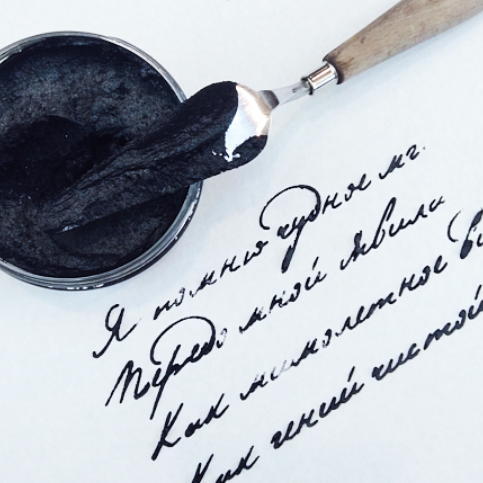 Я помню чудное мг
Передо мной явила
Как мимолетное ви
Как гений чистой